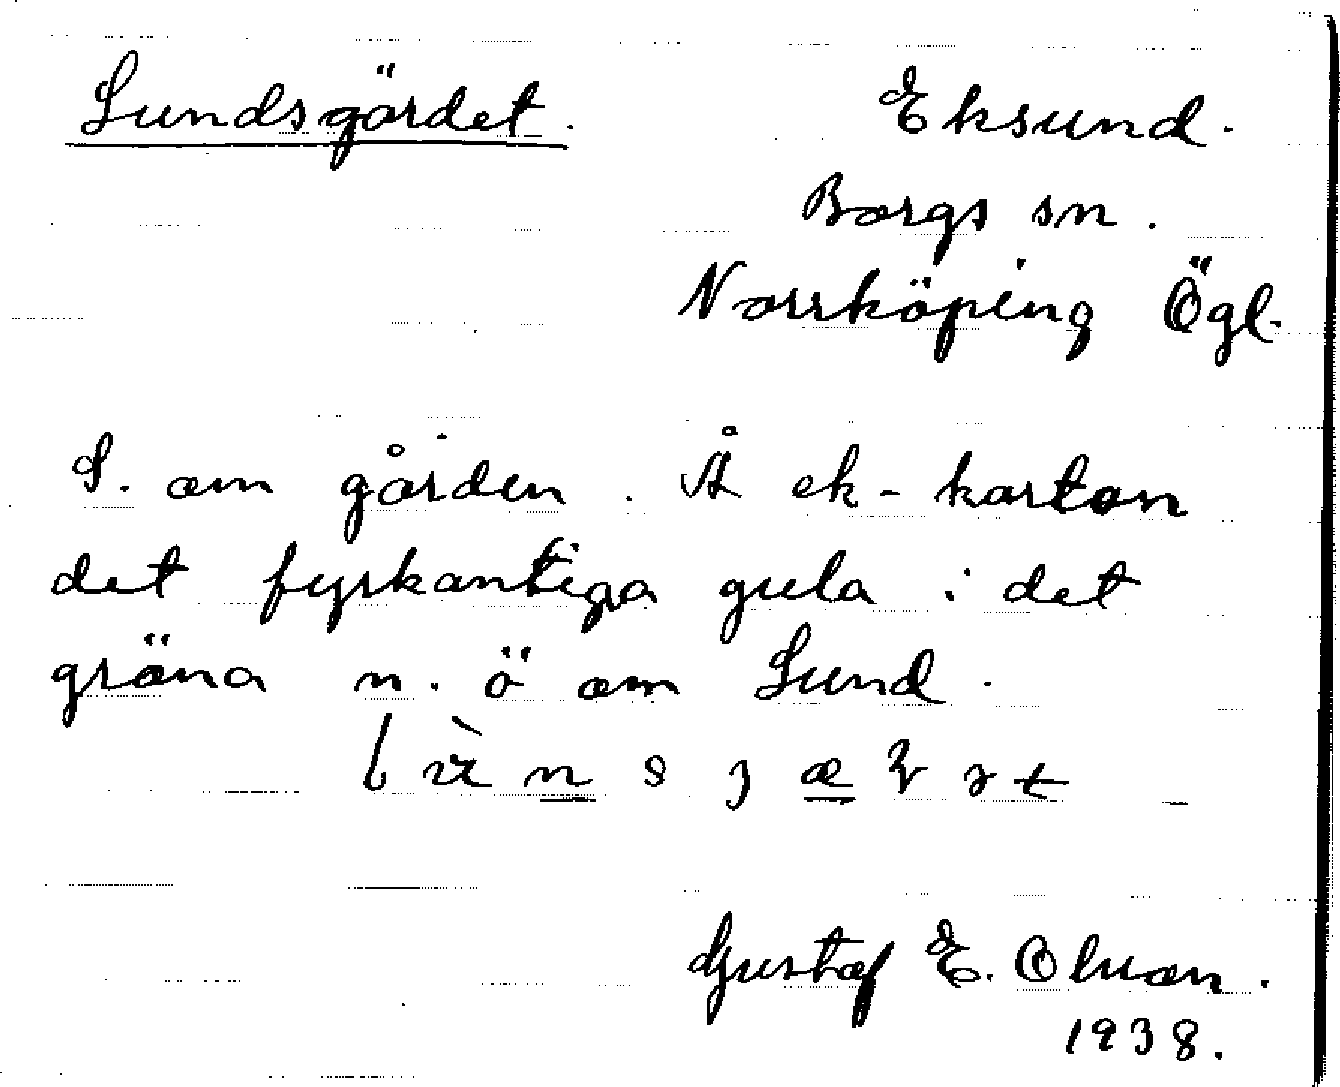 Lundsgärdet.
Eksund.
Borgs sn.
Norrköping Ögl.
S. om gården. Å ek-kartan
det fyrkantiga gula i det
gröna n. ö om Lund.
Gustaf E. Olson.
1938.